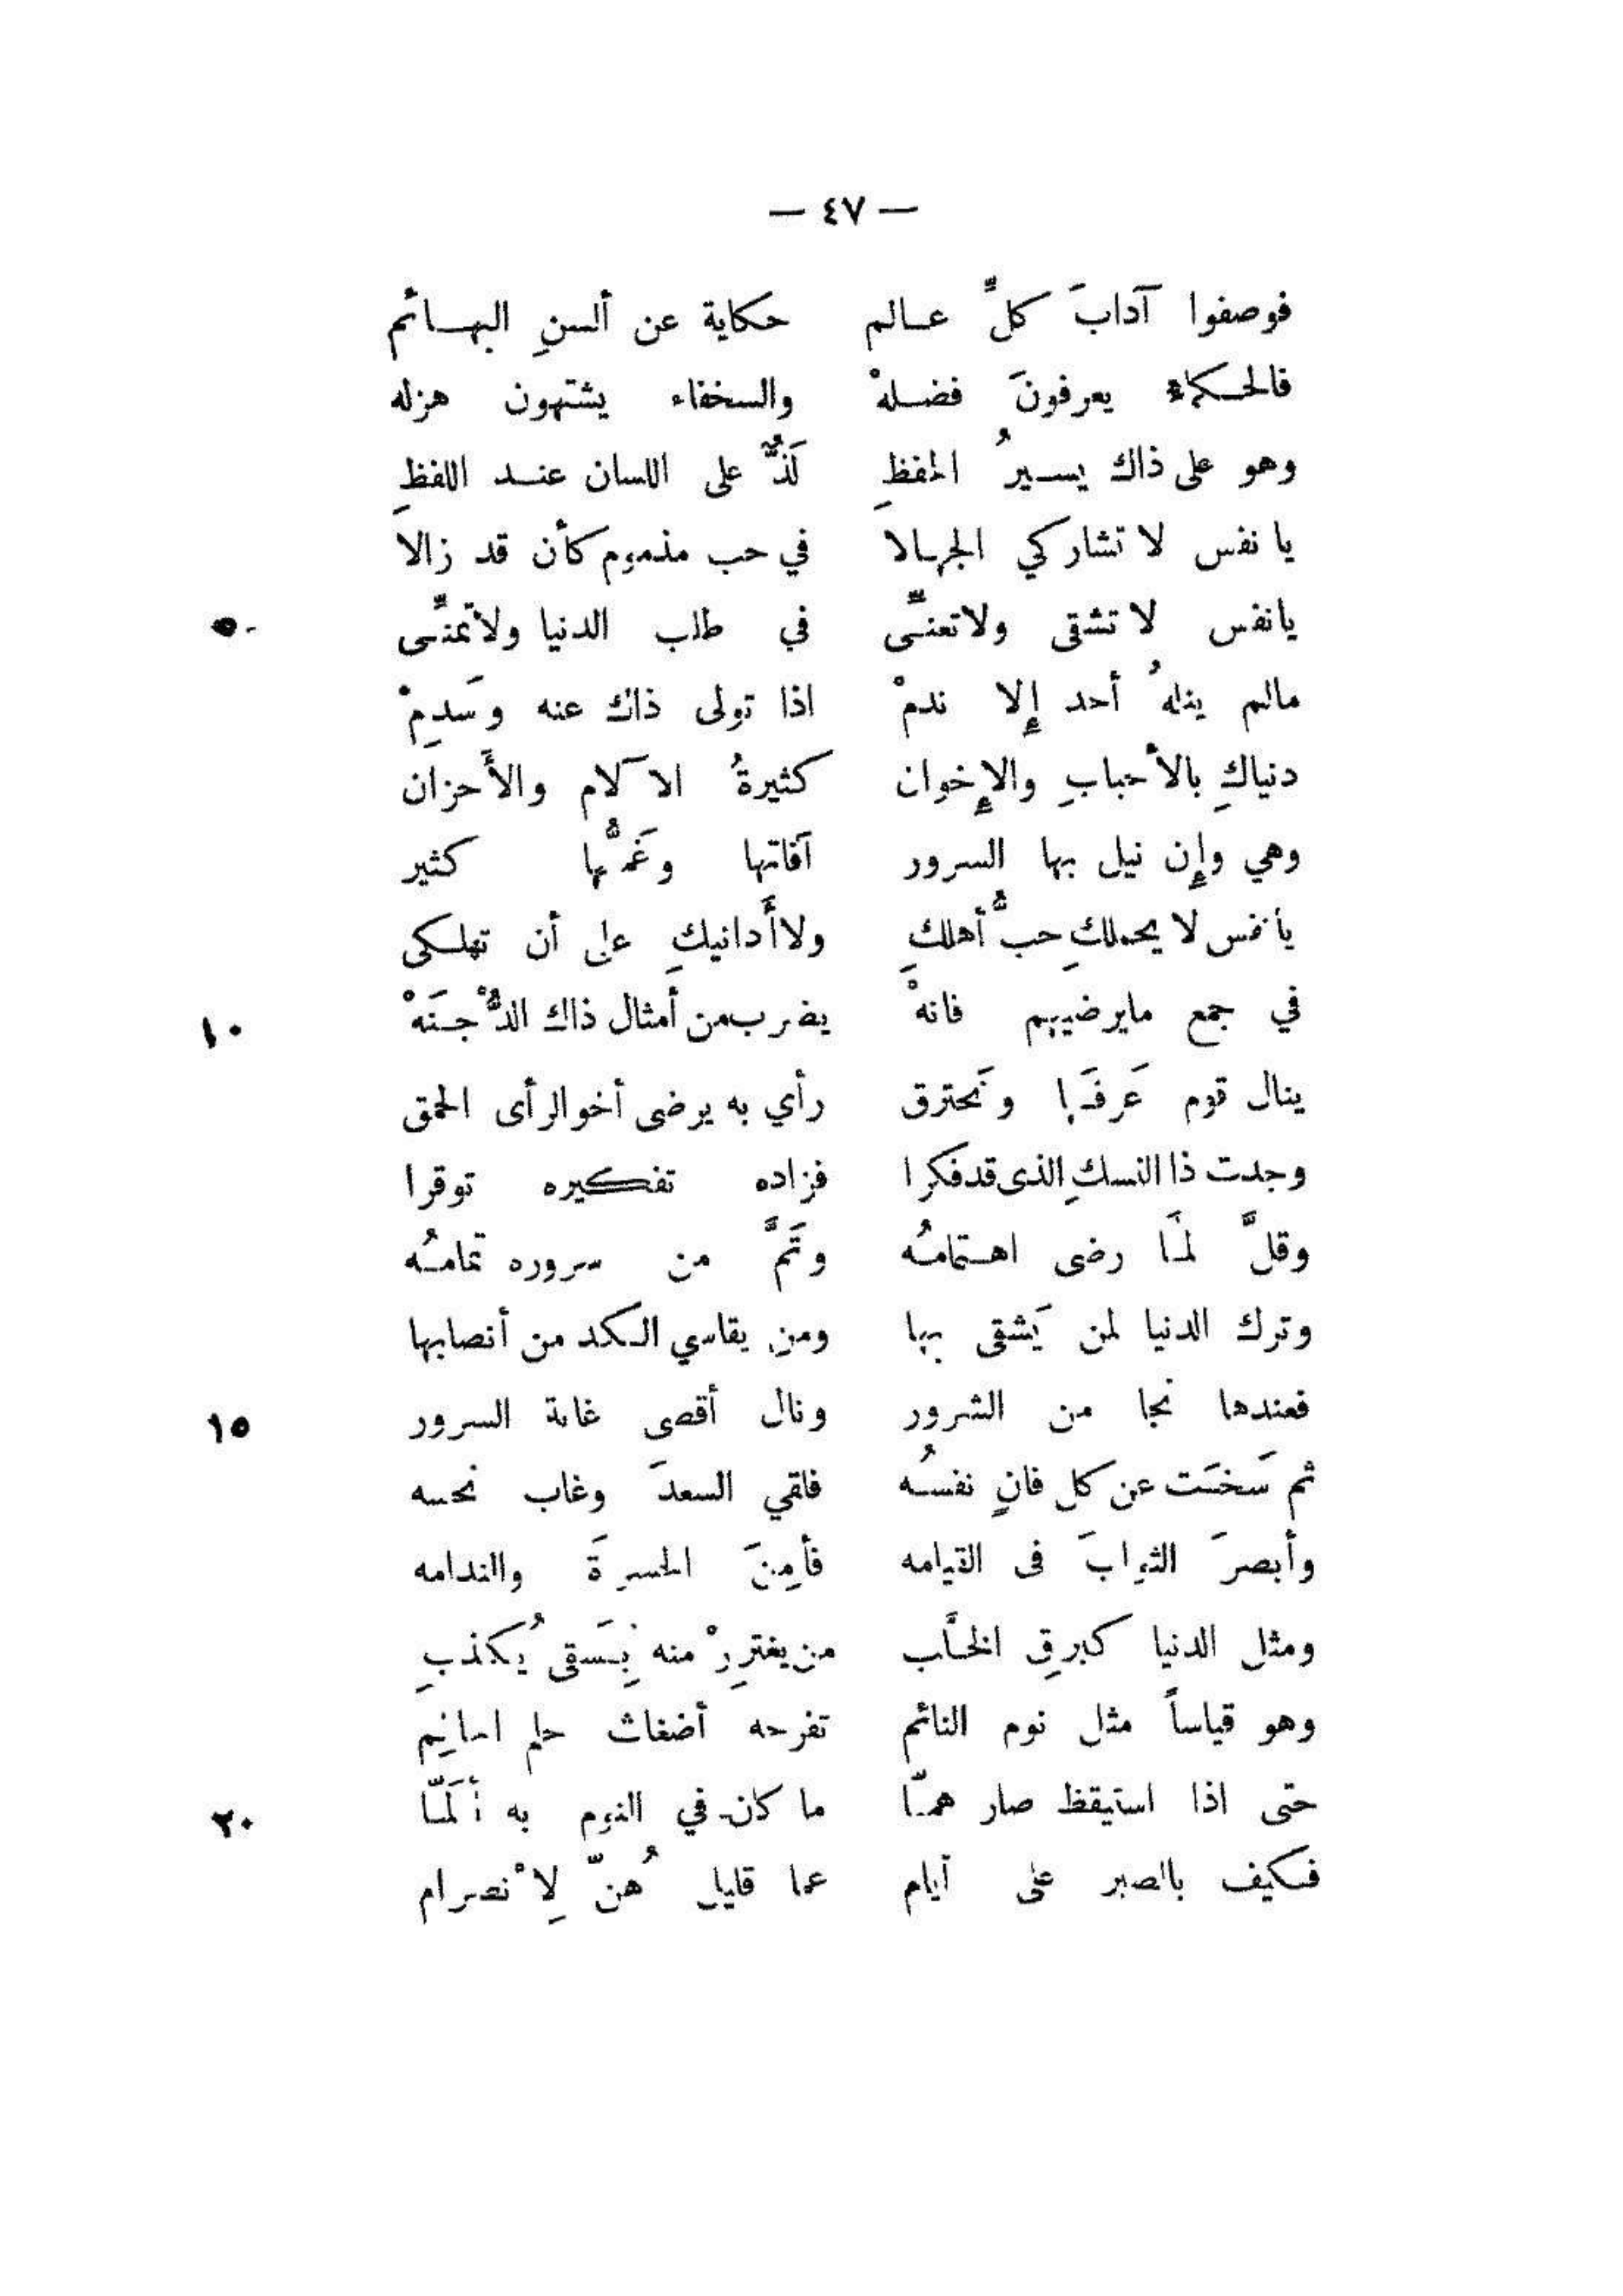 — ٤٧ —
فوصفوا آدابَ كلِّ عالم حكاية عن ألسنِ البهائم
فالحكماء يعرفونَ فضلهْ والسخفاء يشتهون هزله
وهو على ذاك يسيرُ الحفظِ لَذٌّ على اللسان عند اللفظِ
يا نفس لا تشاركي الجهالا في حب مذموم كأن قد زالا
يانفس لا تشقى ولا تعنِّى في طلب الدنيا ولا تمنِّى ٥
مالم ينلهُ أحد إلا ندمْ اذا تولى ذاك عنه وسَدِمْ
دنياكِ بالأحبابِ والإخوان كثيرةُ الآلام والأَحزان
وهي وإن نيل بها السرور آفاتها وغَمُّها كثير
يانفس لا يحملكِ حبُّ أهلكِ ولا أَدانيكِ على أن تهلكى
في جمع مايرضيهم فانهْ يضرب من أمثال ذاك الدُّجْنَهْ ١٠
ينال قوم عَرفَها ونَحترق رأي به يرضى أخو الرأى الحمق
وجدت ذا النسكِ الذى قد فكرا فزاده تفكيره توقرا
وقلَّ لمَا رضى اهتمامُه وتَمَّ من سروره تمامُه
وترك الدنيا لمن يَشقى بها ومن يقاسي الكد من أنصابها
فعندها نجا من الشرور ونال أقصى غاية السرور ١٥
ثم سَخَت عن كل فانٍ نفسُه فلقي السعدَ وغاب نحسه
وأبصرَ الثوابَ فى القيامه فأمِنَ الحسرةَ والندامه
ومثل الدنيا كبرقِ الخلَّب من يغتررْ منه بِسَقى يُكذبِ
وهو قياساً مثل نوم النائم تفرحه أضغاث حلم
حتى اذا استيقظ صار همّا ما كان في النوم به أَلَمّا ٢٠
فكيف بالصبر على أيام عما قليل هُنّ لِانْصرام